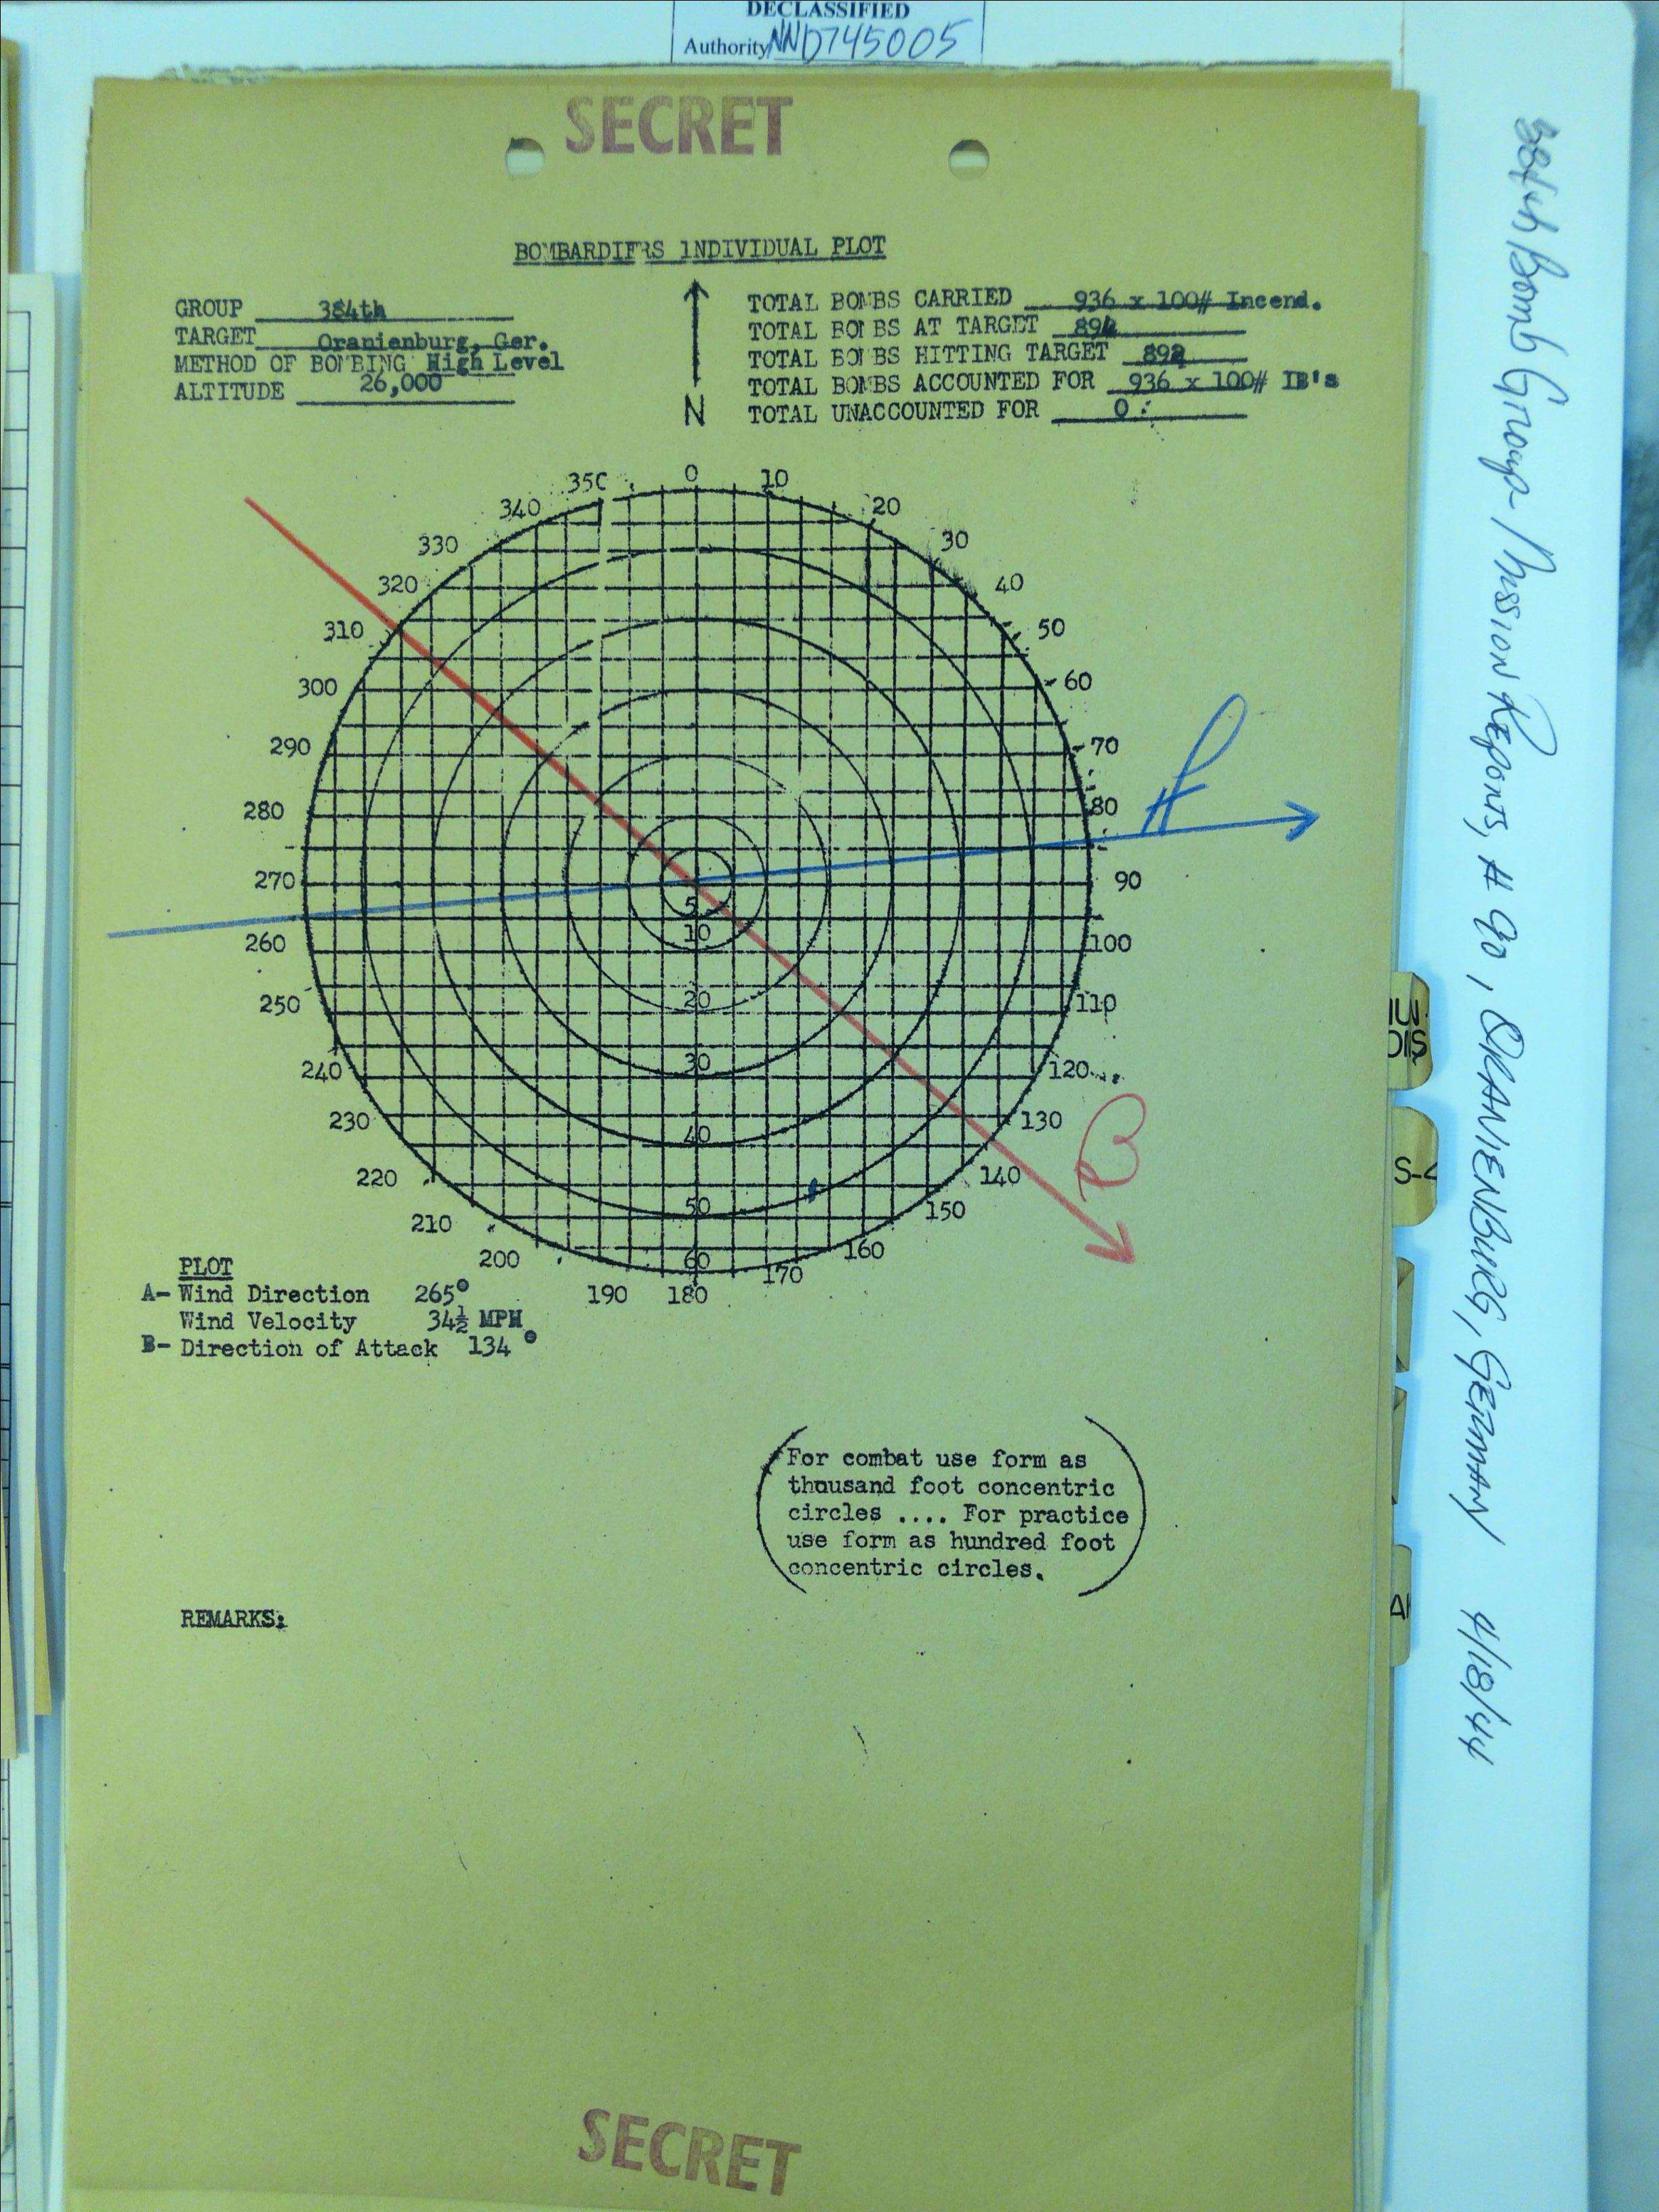 DECLASSIFIED
Authority NND745005
SECRET
BOMBARDIERS INDIVIDUAL PLOT
GROUP 384th
TARGET Oranienburg, Ger.
METHOD OF BOMBING High Level
ALTITUDE 26,000
N
TOTAL BOMBS CARRIED 936 x 100# Incend.
TOTAL BOMBS AT TARGET
TOTAL BOMBS HITTING TARGET
TOTAL BOMBS ACCOUNTED FOR 936 x 100# IB's
TOTAL UNACCOUNTED FOR 0
350 0 10
340 20
330 30
320 40
310 50
300 60
290 70
280 80
270 90
260 100
250 110
240 120
230 130
220 140
210 150
200 160
190 180 170
5
10
20
30
40
50
60
A
B
PLOT
A- Wind Direction 265°
Wind Velocity 34½ MPH
B- Direction of Attack 134°
(For combat use form as
thousand foot concentric
circles .... For practice
use form as hundred foot
concentric circles.)
REMARKS:
SECRET
384th Bomb Group Mission Reports, # 90, ORANIENBURG, GERMANY 4/18/44
DIS
S-2